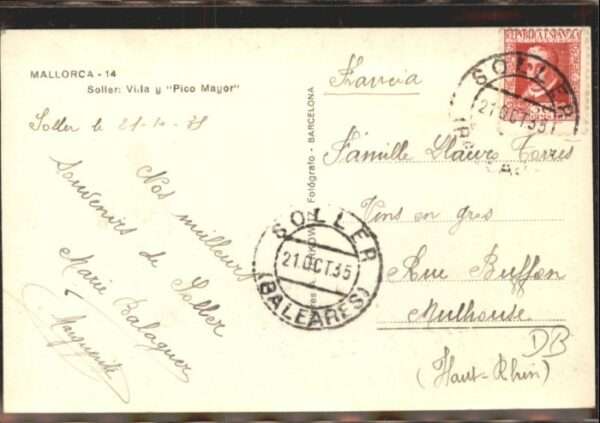 MALLORCA - 14
Soller: Vista y "Pico Mayor"
Soller le 21-10-35
Nos meilleurs
Souvenirs de Soller
Marie Balaguer
Marguerite
Fotógrafo - BARCELONA
SOLLER
21 OCT 35
(BALEARES)
SOLLER
21 OCT 35
Francia
Famille Torres
Vins en gros
Rue Buffon
Mulhouse
(Haut-Rhin)
DB